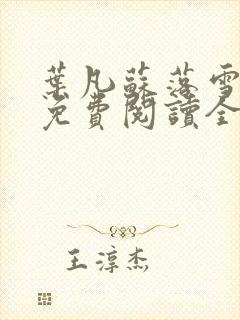 葉凡蘇落雪
免費閱讀全
王淳杰